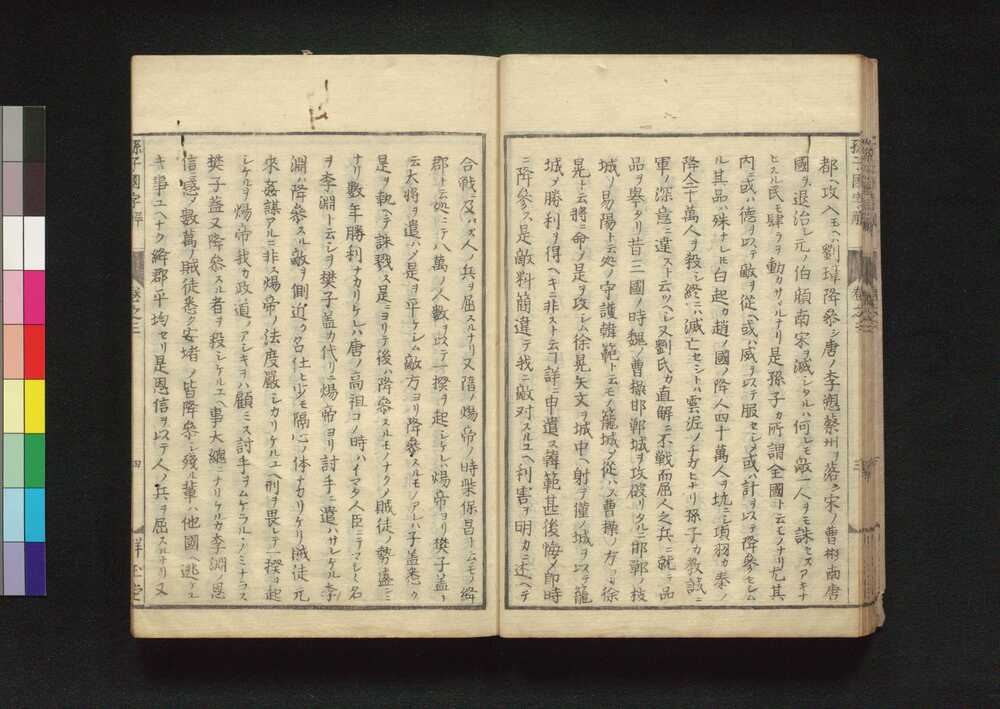 郡ヲ攻入玉ヘハ劉璋降參シ唐ノ李愬蔡州ヲ落シ宋ノ曹彬南唐
國ヲ退治シ元ノ伯顔南宋ヲ滅シタルハ何レモ敵一人ヲモ誅セスアキナ
ヒスル民モ肆ラヲ動カサヽルナリ是孫子カ所謂全國ト云モノナリ尤其
内ニ或ハ德ヲ以テ敵ヲ從ヘ或ハ威ヲ以テ服セシメ或ハ計ヲ以テ降參セシム
ル其品ハ殊ナレ𪜈白起カ趙ノ國ノ降人四十萬人ヲ坑ニシ項羽カ秦ノ
降人二十萬人ヲ殺シ終ニハ滅亡セシトハ雲泥ノチガヒナリ孫子カ教誡ニ
軍ノ深意ニ違ズト云ツヘシ又劉氏カ直解ニ不戰而屈人之兵ニ就テ品
品ヲ擧タリ昔三國ノ時魏ノ曹操邯鄲城ヲ攻破リタルニ邯鄲ノ枝
城ノ易陽ト云処ノ守護韓範ト云モノ籠城シテ從ハズ曹操ノ方ヨリ徐
晃ト云將ニ命シテ是ヲ攻シム徐晃矢文ヲ城中ヘ射テ僅ノ城ヲ以テ籠
城シテ勝利ヲ得ヘキニ非スト云コ詳ニ申遣ス韓範甚後悔シテ即時
ニ降參ス是敵料簡違テ我ニ敵対スルユヘ利害ヲ明カニ述ヘテ
孫子國字解
卷之三
三
合戰ニ及バズ人ノ兵ヲ屈スルナリ又隋ノ煬帝ノ時柴保昌ト云モノ絳
郡ト云処ニテ八萬ノ人數ヲ政テ一揆ヲ起シケレハ煬帝ヨリ樊子蓋ト
云大將ヲ遣ハシテ是ヲ平ケシム敵方ヨリ降參スルモノアレハ子蓋悉ク
是ヲ執ヘテ誅戮ス是ニヨリテ後ハ降參スルモノナクシテ賊徒ノ勢盛ニ
ナリ數年勝利ナカリケレハ唐ノ高祖コノ時ハイマタ人臣ニテマシマシ名
ヲ李淵ト云シヲ樊子蓋カ代リニ煬帝ヨリ討手ニ遣ハサレケル李
淵ハ降參スル敵ヲ側近ク召仕ヒ少モ隔心ノ体ナカリケリ賊徒元
來姦謀アルニ非ス煬帝ノ法度嚴シカリケルユヘ刑ヲ畏レテ一揆ヲ起
シケルヲ煬帝我カ政道ノアシキヲハ顧ミス討手ヲムケラルヽノミナラス
樊子蓋又降參スル者ヲ殺シケルユヘ事大總ニナリケルカ李淵ノ恩
信ニ感シテ數萬ノ賊徒悉ク安堵シテ皆降參シ殘ル輩ハ他國ヘ逃ケル
キ事ユヘナク絳郡平均セリ是恩信ヲ以テ人ノ兵ヲ屈スルナリ又
孫子國字解
卷之三
四